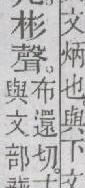 文炳也與下文
彬聲。布還切。
與文部